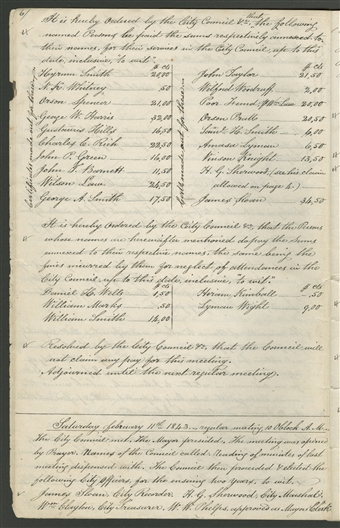 6)
It is hereby Ordered by the City Council &c; that the following
named Persons be paid the sums respectively annexed to
their names, for their services in the City Council, up to this
date, inclusive, to wit:
$ cts
Hyrum Smith 25,00
N. K. Whitney ,50
Orson Spencer 21,00
George W. Harris 32,00
Gustavus Hills 16,50
Charles C. Rich 22,50
John P. Green 16,00
John T. Barnett 11,50
Wilson Law 24,50
George A. Smith 17,50
$ cts
John Taylor 21,50
Wilford Woodruff 2,00
Poor Fund 
Orson Pratt 20,50
Saml. H. Smith 4,00
Amasa Lyman 6,50
Vinson Knight 13,50
H. G. Sherwood (see his claim
allowed in page 4.)
James Sloan 34,50
It is hereby Ordered by the City Council &c. that the Persons
whose names are hereinafter mentioned do pay the sums
annexed to their respective names, the same being the
fines incurred by them for neglect of attendances in the
City Council up to this date, inclusive, to wit:
$ cts
Daniel H. Wells 1,50
William Marks ,50
William Smith 14,00
$ cts
Hiram Kimball ,50
Lyman Wight 9,00
Resolved by the City Council &c. that the Council will
not claim any pay for this meeting.
Adjourned until the next regular meeting.
Saturday February 11th 1843. regular meeting, 10 OClock A.M.
The City Council met, the Mayor presided. The meeting was opened
by Prayer. Names of the Council called. Reading of minutes of last
meeting dispensed with. The Council then proceeded & elected the
following City Officers, for the ensuing two years, to wit,
James Sloan, City Recorder. H. G. Sherwood, City Marshal.
Wm. Clayton, City Treasurer. W. W. Phelps approved as Mayor's Clerk